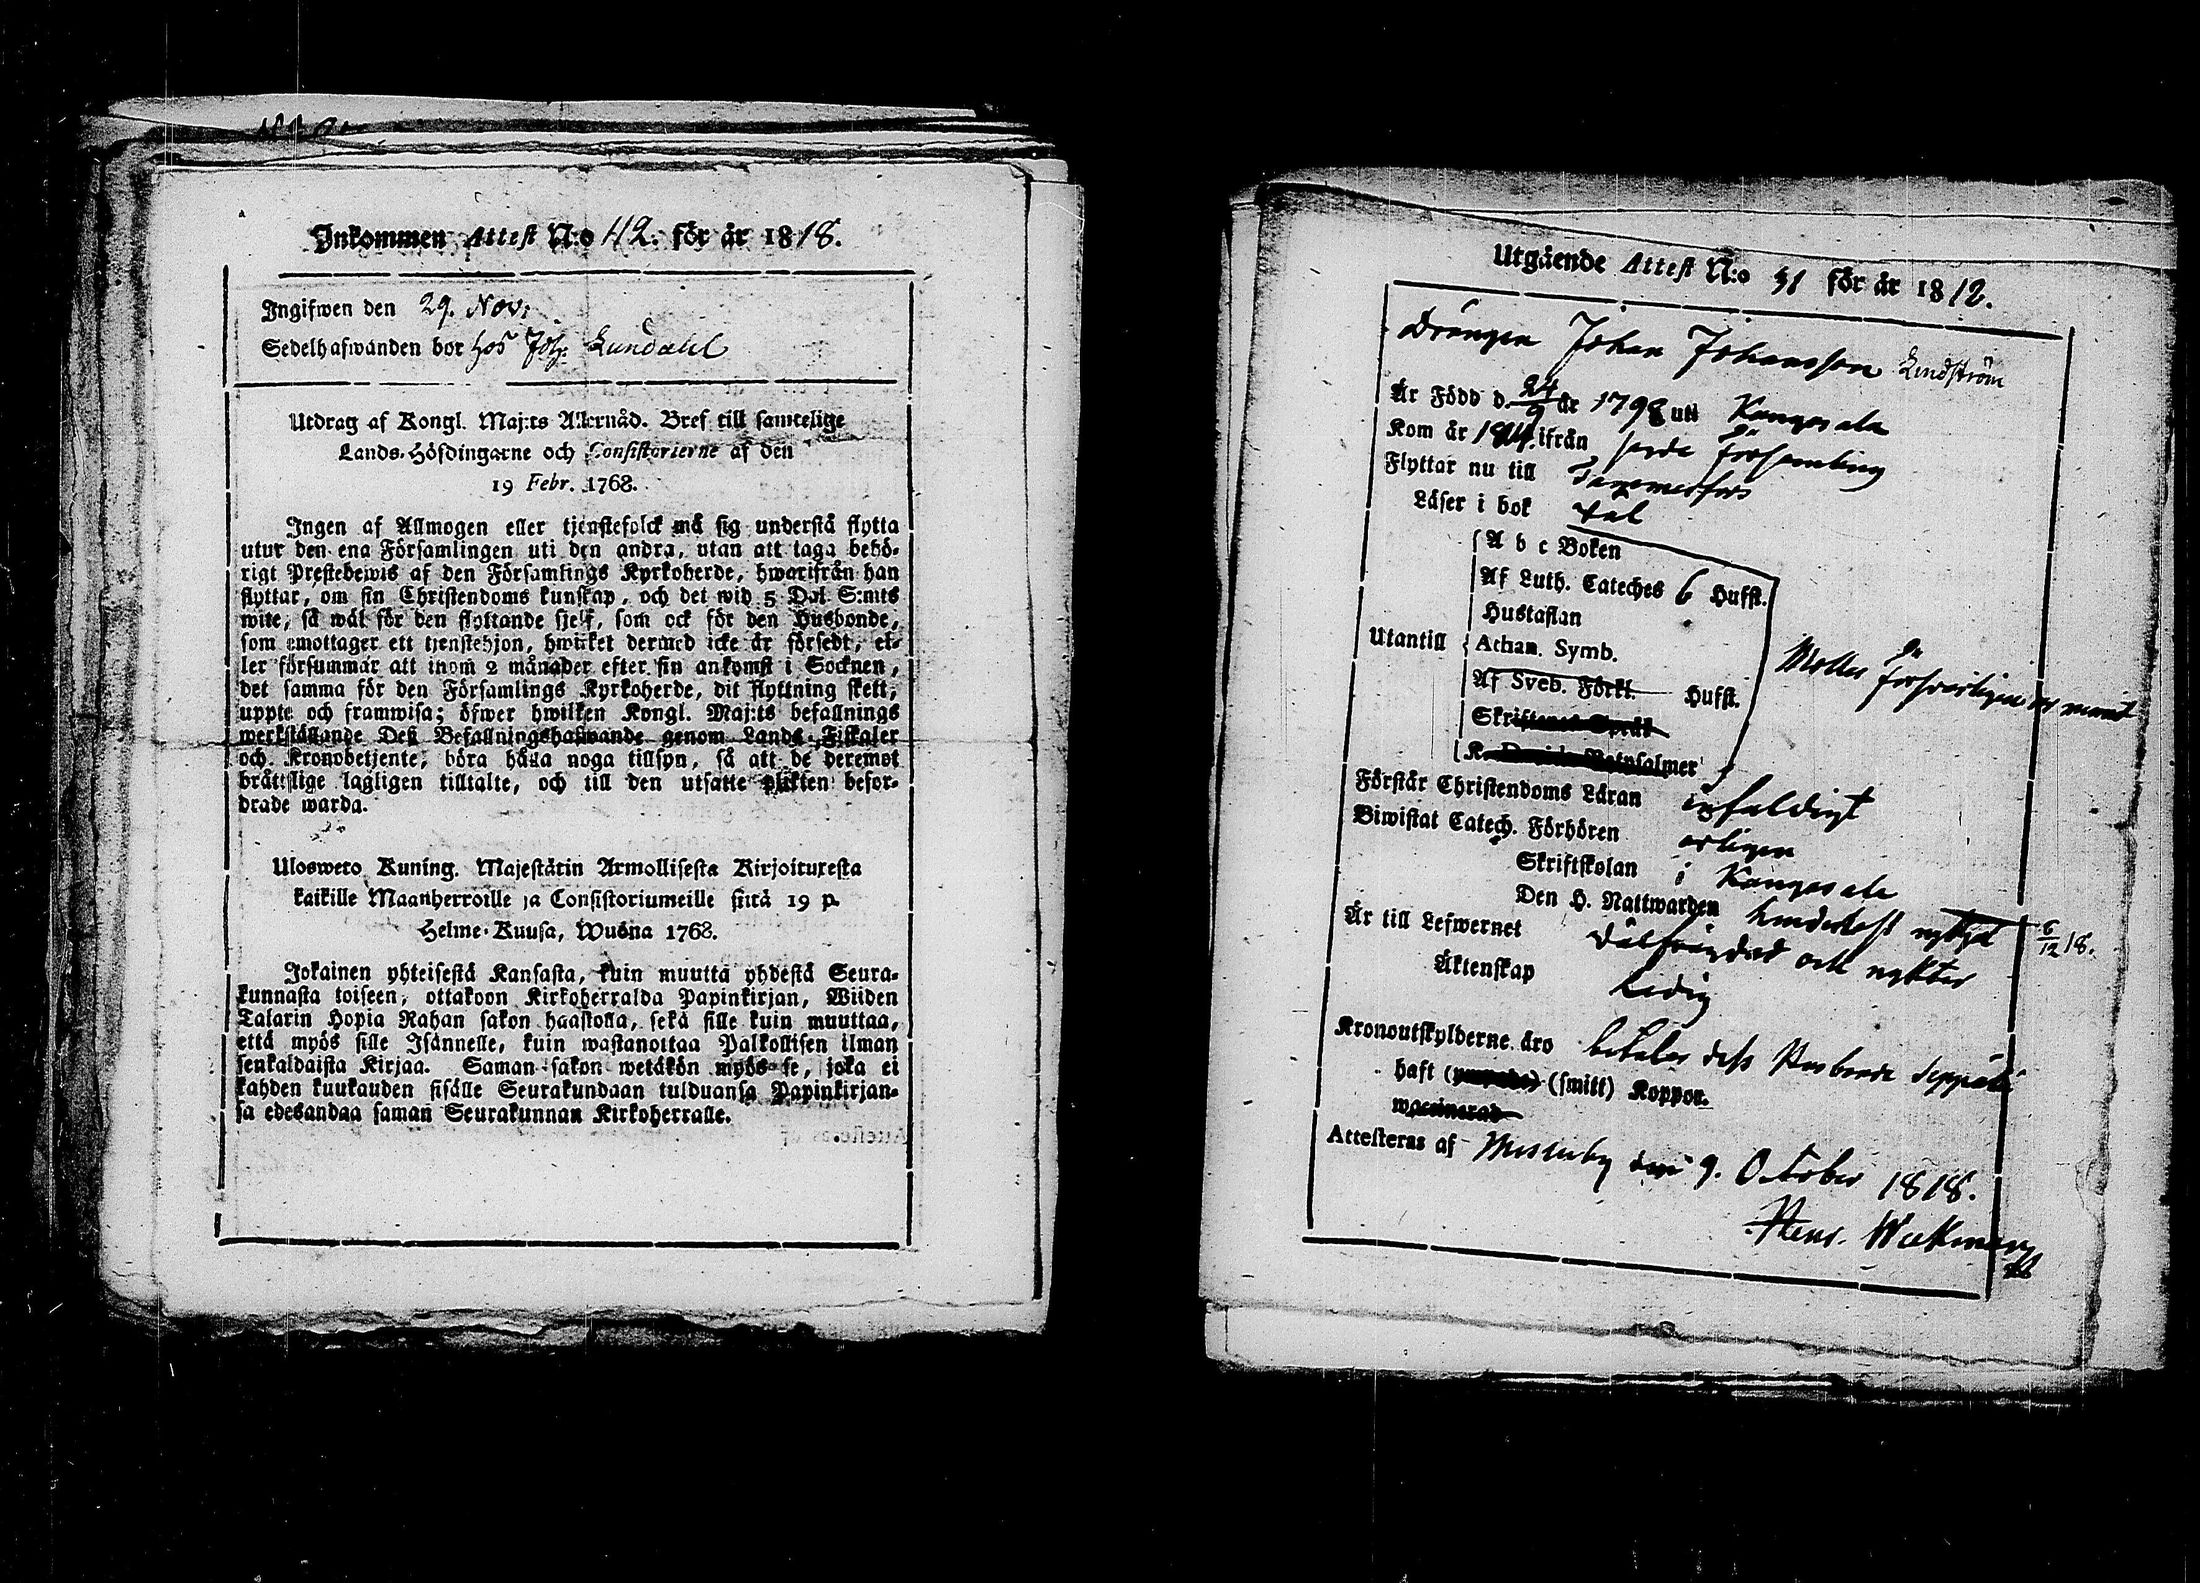 Inkommen Attest N:o 42. för år 1818.
Ingifwen den 29. Nov:
Sedelhafwanden bor hos Joh. Lundahl
Utdrag af Kongl. Maj:ts Allernåd. Bref till samtelige
Lands-Höfdingarne och Consistorierne af den
19 Febr. 1768.
Ingen af Allmogen eller tjenstefolck må sig understå flytta
utur den ena Församlingen uti den andra, utan att taga behö-
rigt Prestebewis af den Församlings Kyrkoherde, hwarifrån han
flyttar, om sin Christendoms kunskap, och det wid 5 Dal S:mts
wite, så wäl för den flyttande sjelf, som ock för den Husbonde,
som emottager ett tjenstehjon, hwilket dermed icke är försedt, el-
ler försummar att inom 2 månader efter sin ankomst i Socknen,
det samma för den Församlings Kyrkoherde, dit flyttning skett,
uppte och framwisa; öfwer hwilken Kongl. Maj:ts befallnings
werkställande Deß Befallningshafwande genom Lands-Fiskaler
och Kronobetjente, böra hålla noga tillsyn, så att de deremot
brättslige lagligen tilltalte, och till den utsatte plikten befor-
drade warda.
Ulosweto Kuning. Majestätin Armollisesta Kirjoituxesta
kaikille Maanherroille ja Consistoriumeille siitä 19 p.
Helme-Kuusa, Wuonna 1768.
Jokainen yhteisestä Kansasta, kuin muutta yhdestä Seura-
kunnasta toiseen, ottakoon Kirkoherralda Papinkirjan, Wiiden
Talarin Hopia Rahan sakon haastolla, sekä sille kuin muuttaa,
että myös sille Isännelle, kuin wastanottaa Palkollisen ilman
senkaldaista Kirjaa. Saman sakon wetäkön myös se, joka ei
kahden kuukauden sisälle Seurakundaan tulduansa Papinkirjan-
sa edesandaa saman Seurakunnan Kirkoherralle.
Utgående Attest N:o 31 för år 1812.
Drängen Johan Johansson Lindström
Är Född d. 24/9 år 1798 uti Kangasala
Kom år 1814 ifrån sagde Församling
Flyttar nu till Tammerfors
Läser i bok wäl
A b c Boken
Af Luth. Cateches 6 Hufst.
Hustaflan
Utantill Athan. Symb.
Af Sveb. Förkl. Hufst.
Skriftenes Språk
K. Davids Botpsalmer
Förstår Christendoms Läran enfaldigt
Biwistat Catech. Förhören årligen
Skriftskolan i Kangasala
Den H. Nattwarden hinderlöst nyttjat 6/12 18.
Är till Lefwernet wälfrägdad och nykter
Äktenskap Ledig
Kronoutskylderne äro betalas deß Husbonde Seppälä
haft (smitt) Koppor.
waccinerad
Attesteras af Messuby den 9. October 1818.